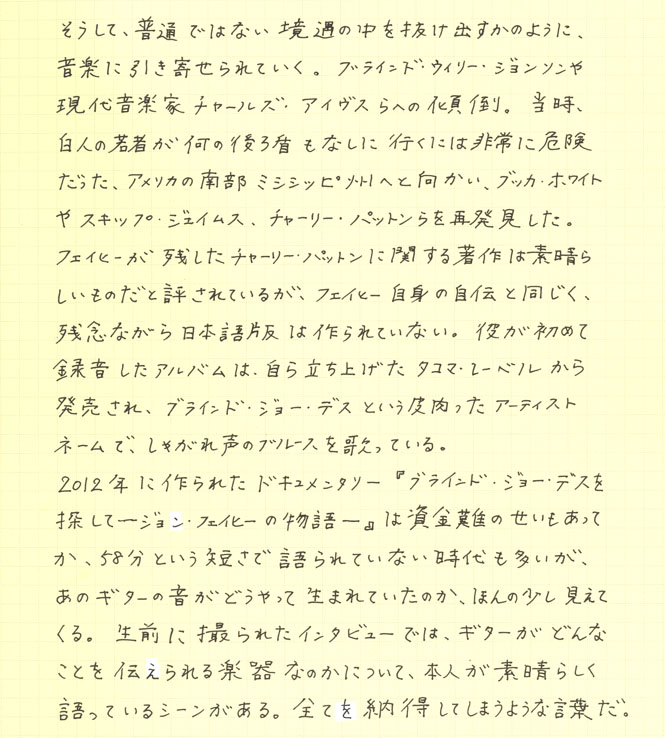 そうして、普通ではない境遇の中を抜け出すかのように、
音楽に引き寄せられていく。ブラインド・ウィリー・ジョンソンや
現代音楽家チャールズ・アイヴスらへの傾倒。当時、
白人の若者が何の後ろ盾もなしに行くには非常に危険
だった、アメリカの南部ミシシッピ州へと向かい、ブッカ・ホワイト
やスキップ・ジェイムス、チャーリー・パットンらを再発見した。
フェイヒーが残したチャーリー・パットンに関する著作は素晴ら
しいものだと評されているが、フェイヒー自身の自伝と同じく、
残念ながら日本語版は作られていない。彼が初めて
録音したアルバムは、自ら立ち上げたタコマ・レーベルから
発売され、ブラインド・ジョー・デスという皮肉ったアーティスト
ネームで、しゃがれ声のブルースを歌っている。
2012年に作られたドキュメンタリー『ブラインド・ジョー・デスを
探して―ジョン・フェイヒーの物語―』は資金難のせいもあって
か、58分という短さで語られていない時代も多いが、
あのギターの音がどうやって生まれていたのか、ほんの少し見えて
くる。生前に撮られたインタビューでは、ギターがどんな
ことを伝えられる楽器なのかについて、本人が素晴らしく
語っているシーンがある。全てを納得してしまうような言葉だ。